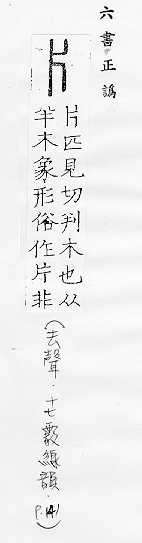 六書正譌
片匹見切判木也从
半木象形俗作片非
（去聲．十七霰線韻．P.